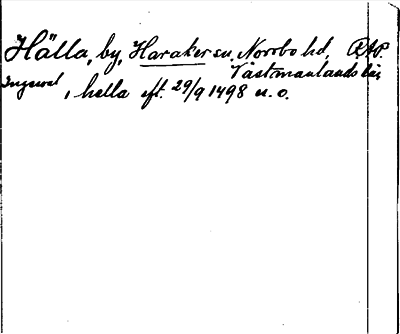 Hälla, by, Haraker sn, Norrbo hd, RAP.
Västmanlands län
Ingewal, hella eft. 29/9 1498 u. o.